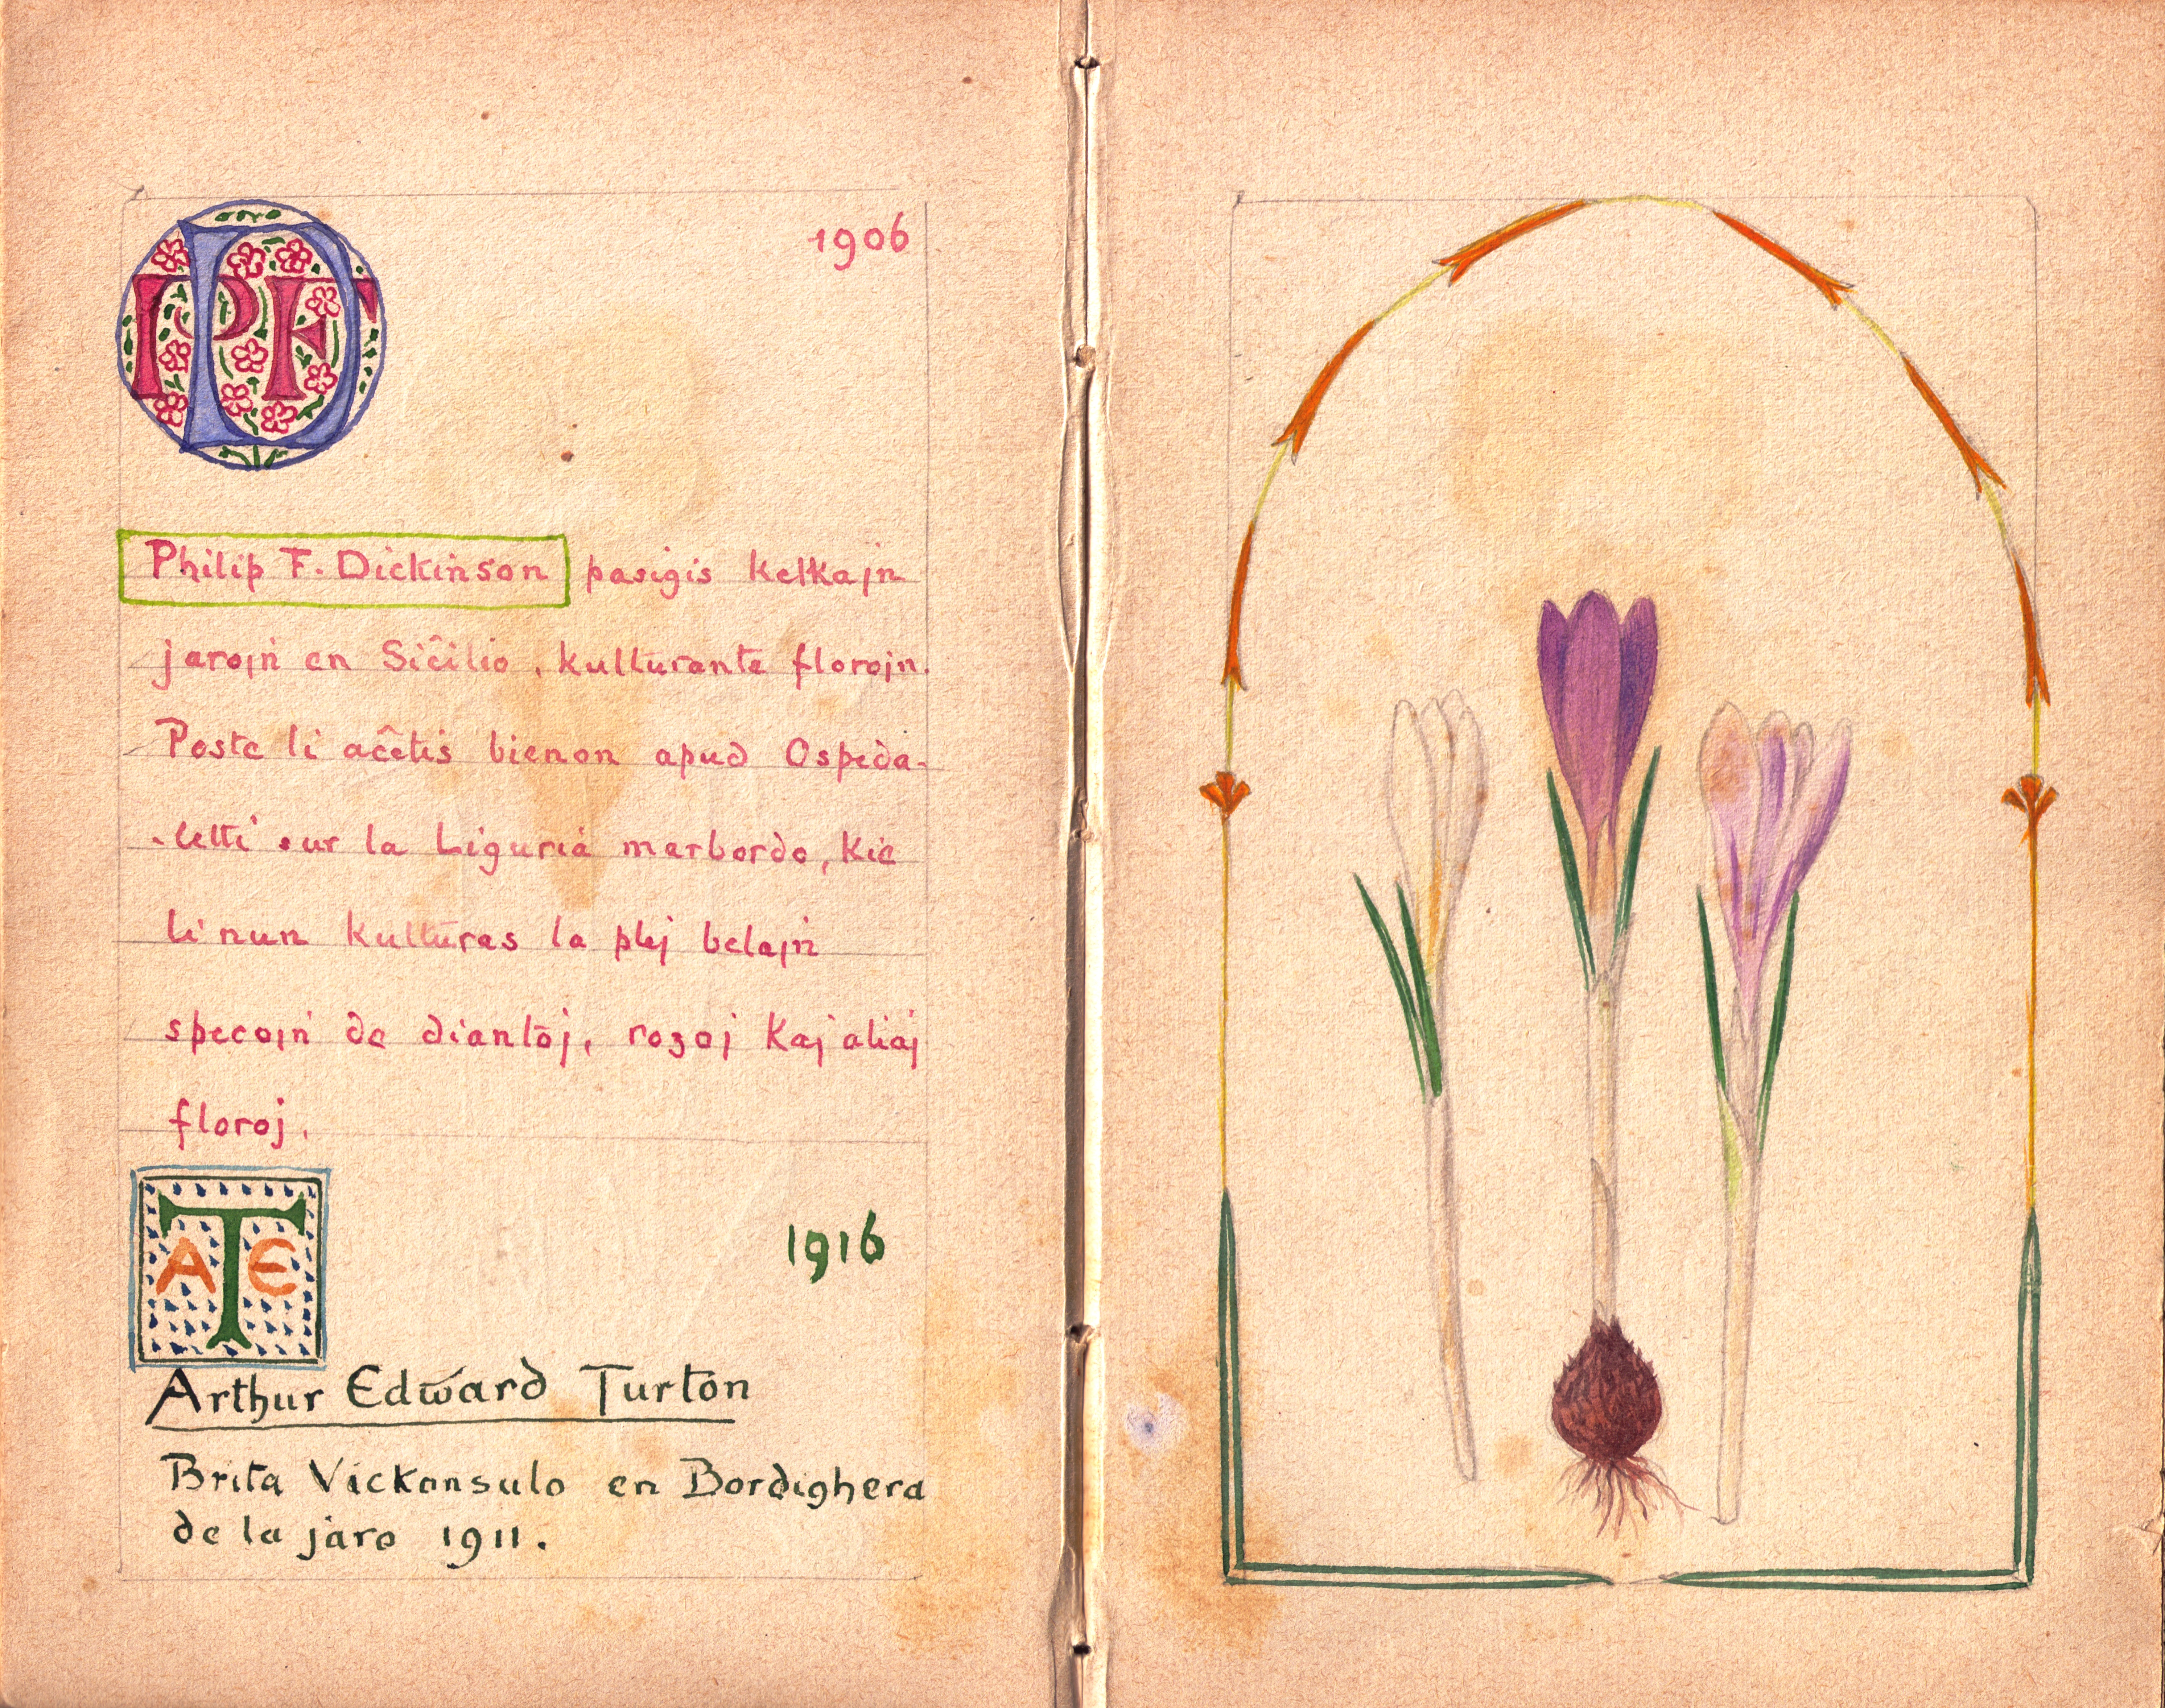 PDF
1906
Philip F. Dickinson pasigis kelkajn
jarojn en Siĉilio, kulturante florojn.
Poste li aĉetis bienon apud Ospeda-
-letti sur la Liguria marbordo, kie
li nun kulturas la plej belajn
specojn de diantoj, rozoj kaj aliaj
floroj.
ATE
1916
Arthur Edward Turton
Brita Vickonsulo en Bordighera
de la jaro 1911.